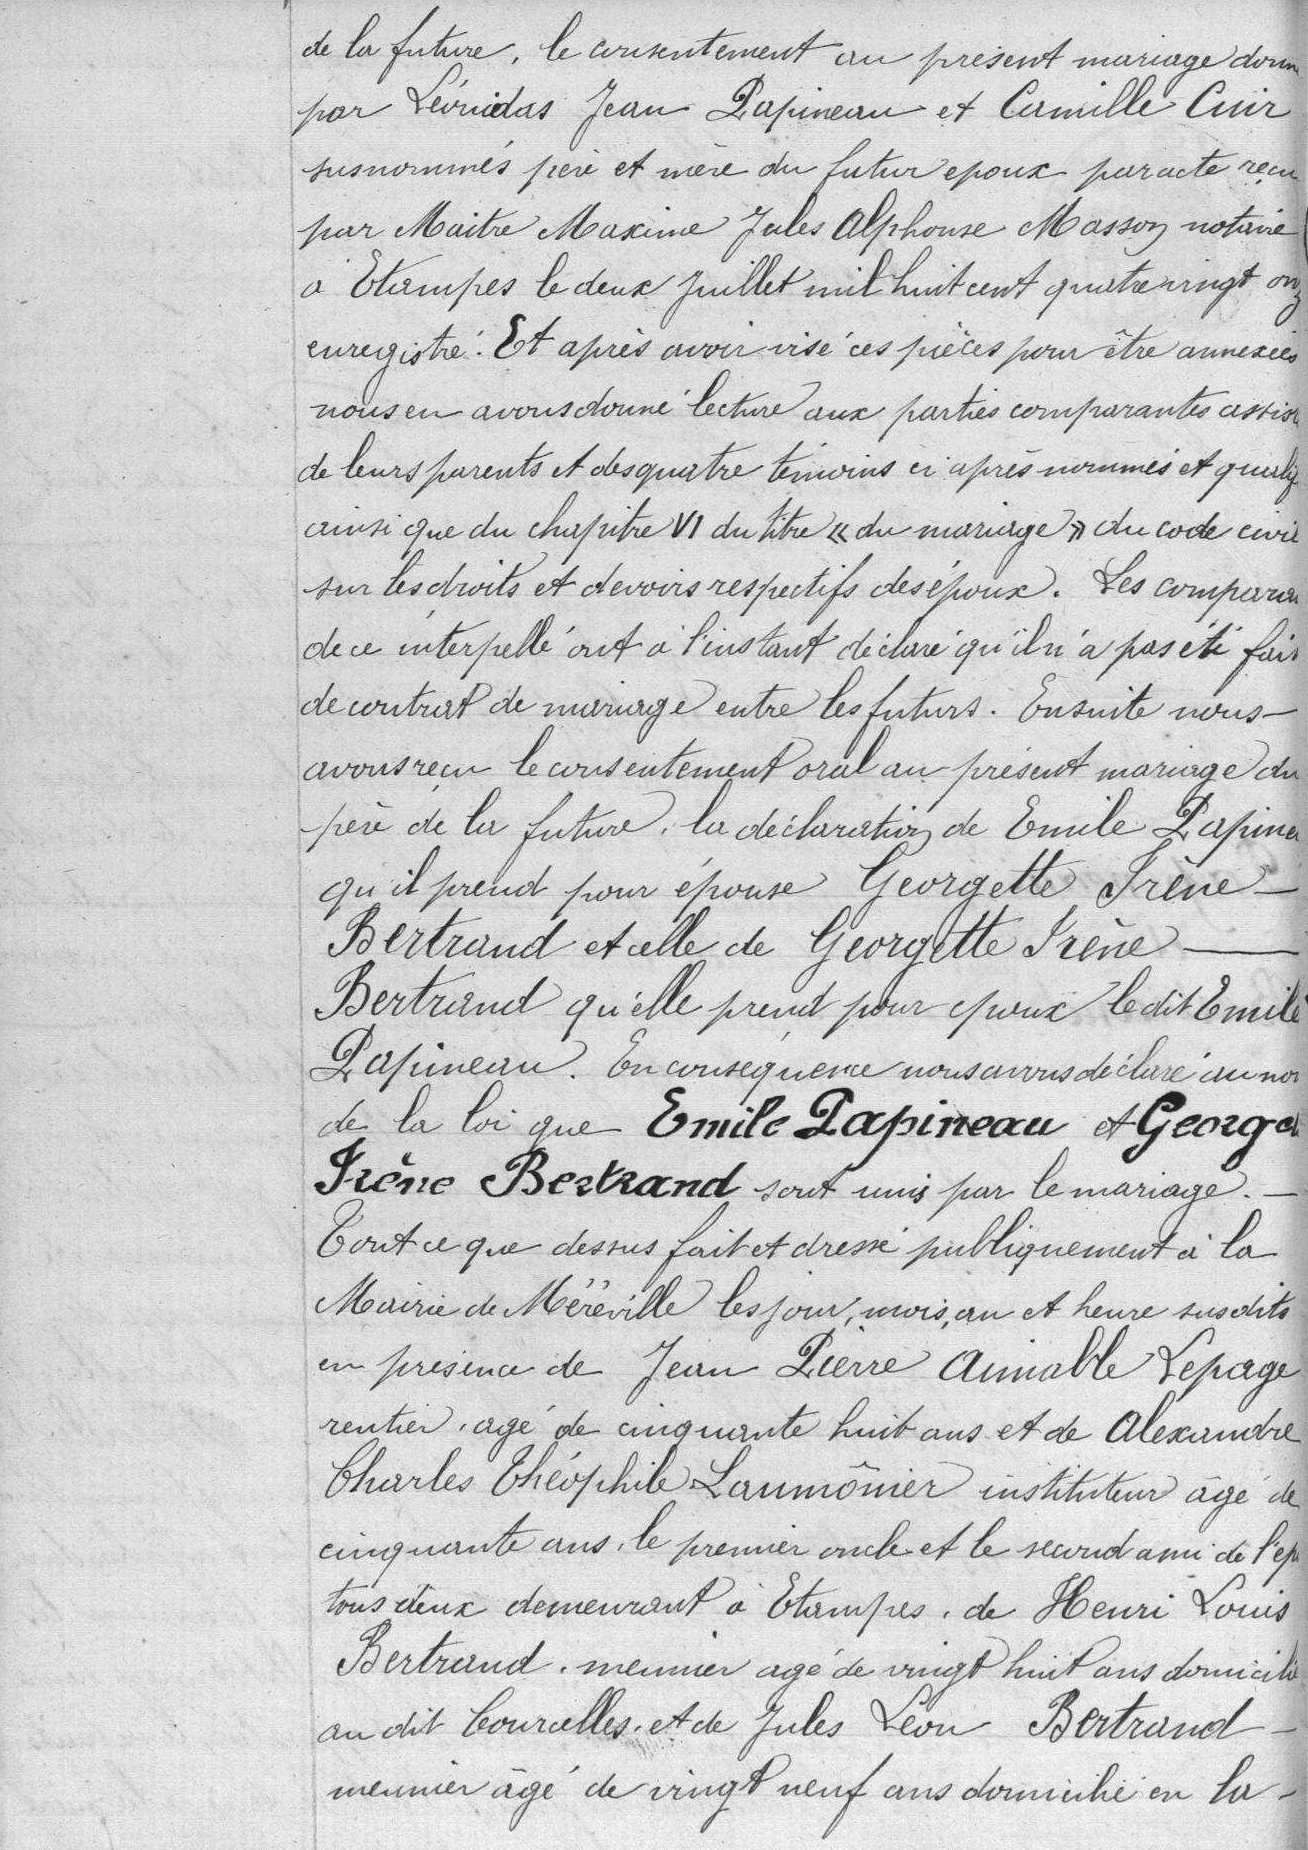 de la future, le consentement au présent mariage donn
par Léonidas Jean Papineau et Camille Cuir
susnommés père et mère du futur epoux par acte reçu
par Maitre Maxime Jules Alphonse Masson notaire
à Etampes le deux Juillet mil huit cent quatre vingt onz
enregistré. Et après avoir visé ces pièces pour être annexées
nous en avons donné lecture aux parties comparantes assis
de leurs parents et des quatre témoins ci après nommés et qualif
ainsi que du chapitre VI du titre « du mariage » du code civil
sur les droits et devoirs respectifs des époux. Les compara
de ce interpellé ont à l'instant déclaré qu'il n'a pas été fait
de contrat de mariage entre les futurs. Ensuite nous —
avons reçu le consentement oral au présent mariage du
père de la future, la déclaration de Emile Papine
qu'il prend pour épouse Georgette Irène —
Bertrand et celle de Georgette Irène —
Bertrand qu'elle prend pour epoux le dit Emile
Papineau. En conséquence nous avons déclaré au no
de la loi que Emile Papineau et George
Irène Bertrand sont unis par le mariage. —
Tout ce que dessus fait et dressé publiquement à la
Mairie de Méréville les jour, mois, an et heure susdits
en présence de Jean Pierre Aimable Lepage
rentier, agé de cinquante huit ans et de Alexandre
Charles Théophile Laumônier instituteur âgé de
cinquante ans, le premier oncle et le second ami de l'ép
tous deux demeurant à Etampes, de Henri Louis
Bertrand, meunier agé de vingt huit ans domicilié
au dit Courcelles, et de Jules Léon Bertrand —
meunier âgé de vingt neuf ans domicilié en la -